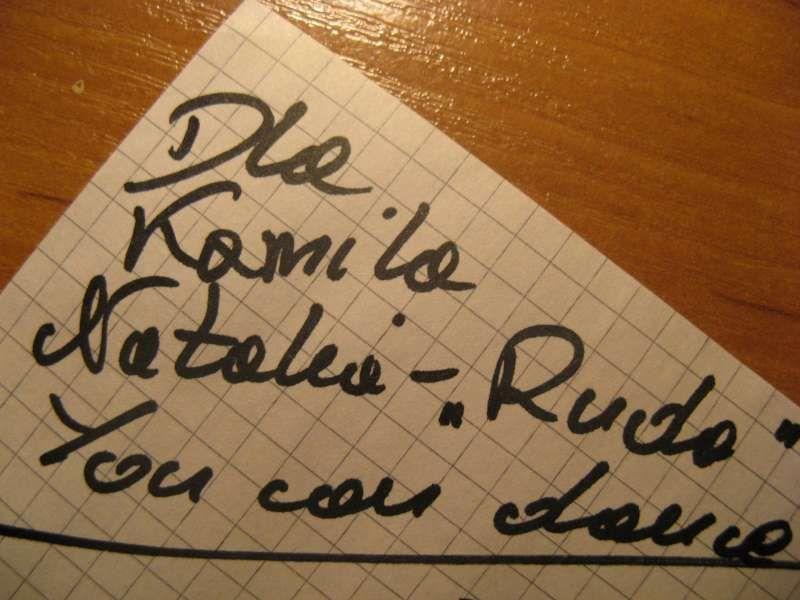 Dla
Kamila
Natalia - „Ruda"
You can dance